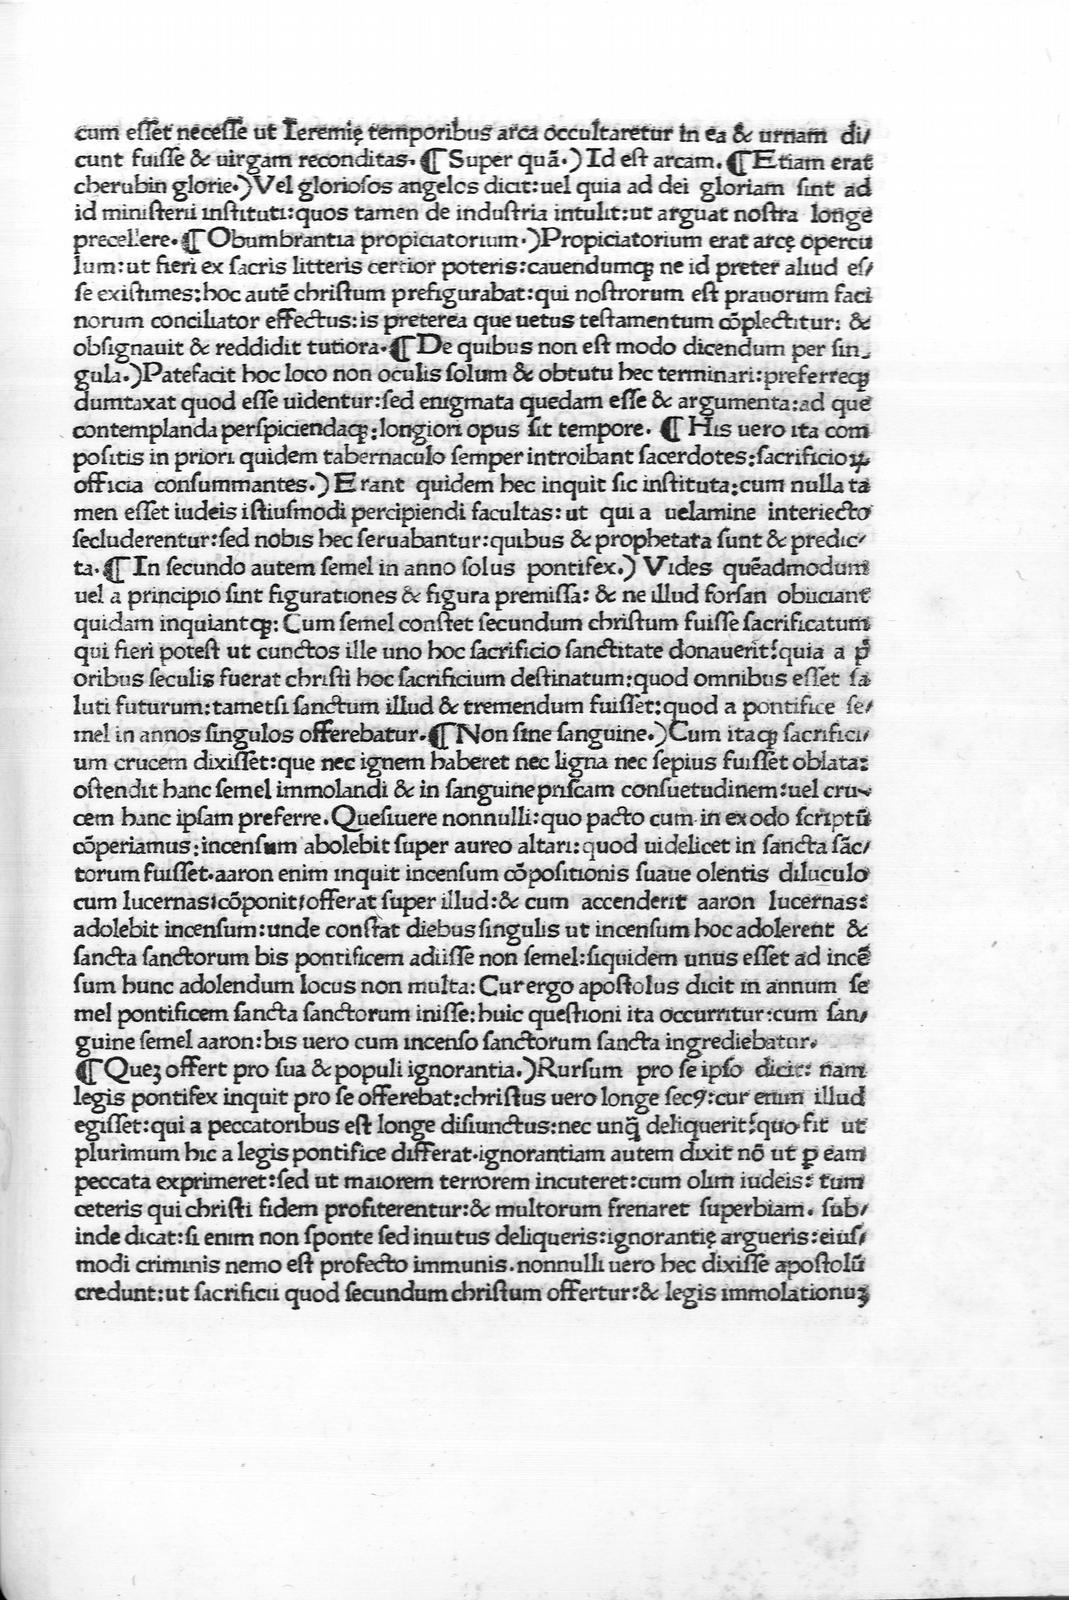 cum eſſet neceſſe ut Ieremię temporibus arca occultaretur in ea & urnam di/
cunt fuiſſe & uirgam reconditas. ¶ Super quã.) Id eſt arcam. ¶ Etiam erat
cherubin glorie.) Vel glorioſos angelos dicit: uel quia ad dei gloriam ſint ad
id miniſterii inſtituti: quos tamen de induſtria intulit: ut arguat noſtra longe
precellere. ¶ Obumbrantia propiciatorium.) Propiciatorium erat arcę opercu
lum: ut fieri ex ſacris litteris certior poteris: cauendumqꝫ ne id preter aliud eſ/
ſe exiſtimes: hoc autẽ chriſtum prefigurabat: qui noſtrorum eſt prauorum faci
norum conciliator effectus: is preterea que uetus teſtamentum cõplectitur: &
obſignauit & reddidit tutiora. ¶ De quibus non eſt modo dicendum per ſin/
gula.) Patefacit hoc loco non oculis ſolum & obtutu hec terminari: preferreqꝫ
dumtaxat quod eſſe uidentur: ſed enigmata quedam eſſe & argumenta: ad que
contemplanda perſpiciendaqꝫ: longiori opus ſit tempore. ¶ His uero ita com
poſitis in priori quidem tabernaculo ſemper introibant ſacerdotes: ſacrificioꝝ
officia conſummantes.) Erant quidem hec inquit ſic inſtituta: cum nulla ta
men eſſet iudeis iſtiuſmodi percipiendi facultas: ut qui a uelamine interiecto
ſecluderentur: ſed nobis hec ſeruabantur: quibus & prophetata ſunt & predic/
ta. ¶ In ſecundo autem ſemel in anno ſolus pontifex.) Vides quẽadmodum
uel a principio ſint figurationes & figura premiſſa: & ne illud forſan obiiciant
quidam inquiantqꝫ: Cum ſemel conſtet ſecundum chriſtum fuiſſe ſacrificatum
qui fieri poteſt ut cunctos ille uno hoc ſacrificio ſanctitate donauerit: quia a p̃
oribus ſeculis fuerat chriſti hoc ſacrificium deſtinatum: quod omnibus eſſet ſa
luti futurum: tametſi ſanctum illud & tremendum fuiſſet: quod a pontifice ſe/
mel in annos ſingulos offerebatur. ¶ Non ſine ſanguine.) Cum itaqꝫ ſacrifici/
um crucem dixiſſet: que nec ignem haberet nec ligna nec ſepius fuiſſet oblata:
oſtendit hanc ſemel immolandi & in ſanguine priſcam conſuetudinem: uel cru/
cem hanc ipſam preferre. Queſiuere nonnulli: quo pacto cum in exodo ſcriptũ
cõperiamus: incenſum abolebit ſuper aureo altari: quod uidelicet in ſancta ſãc/
torum fuiſſet. aaron enim inquit incenſum cõpoſitionis ſuaue olentis diluculo
cum lucernas cõponit offerat ſuper illud: & cum accenderit aaron lucernas:
adolebit incenſum: unde conſtat diebus ſingulis ut incenſum hoc adolerent &
ſancta ſanctorum bis pontificem adiiſſe non ſemel: ſiquidem unus eſſet ad incẽ
ſum hunc adolendum locus non multa: Cur ergo apoſtolus dicit in annum ſe
mel pontificem ſancta ſanctorum iniſſe: huic queſtioni ita occurritur: cum ſan/
guine ſemel aaron: bis uero cum incenſo ſanctorum ſancta ingrediebatur.
¶ Queꝫ offert pro ſua & populi ignorantia.) Rurſum pro ſe ipſo dicit: nam
legis pontifex inquit pro ſe offerebat: chriſtus uero longe ſecꝰ: cur enim illud
egiſſet: qui a peccatoribus eſt longe diſiunctus: nec unq̃ deliquerit: quo fit ut
plurimum hic a legis pontifice differat. ignorantiam autem dixit nõ ut ꝑ eam
peccata exprimeret: ſed ut maiorem terrorem incuteret: cum olim iudeis: tum
ceteris qui chriſti fidem profiterentur: & multorum frenaret ſuperbiam. ſub/
inde dicat: ſi enim non ſponte ſed inuitus deliqueris: ignorantię argueris: eiuſ/
modi criminis nemo eſt profecto immunis. nonnulli uero hec dixiſſe apoſtolũ
credunt: ut ſacrificii quod ſecundum chriſtum offertur: & legis immolationuꝫ